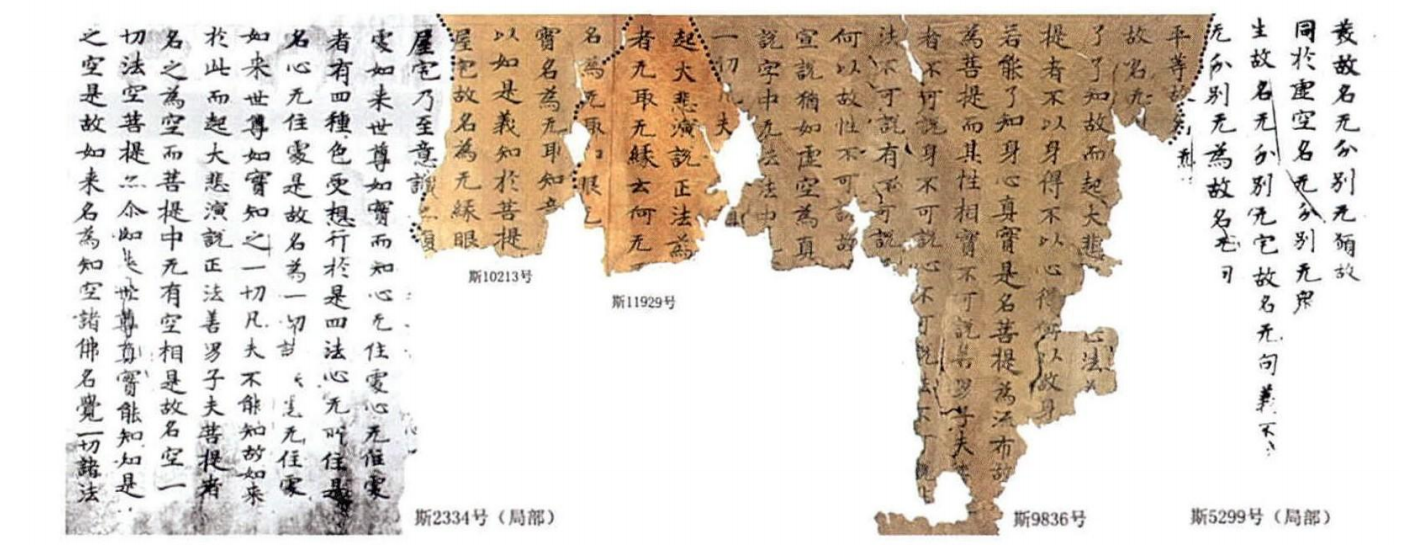 義故名无分別无頞故
同於虛空名无分別无眾
生故名无分別无宅故名无句義不
无分別无為故名无句
平等故名
故名无
了了知故而起大悲 心法
提者不以身得不以心得何以故身
若能了知身心真實是名菩提為流布故
為菩提而其性相實不可說善男子夫
者不可說身不可說心不可說法不可說
法不可說有不可說
何以故性不可說故
宣說猶如虛空為真
說字中无法法中
一切凡夫
起大悲演說正法為
者无取无緣云何无
名為无取知眼
實名為无取知
以如是義知於菩提
屋宅故名為无緣眼
屋宅乃至意識
處如来世尊如實而知心无住處心无住處
者有四種色受想行於是四法心无所住是
名心无住處是故名為一切 无住處
如来世尊如實知之一切凡夫不能知故如来
於此而起大悲演說正法善男子夫菩提者
名之為空而菩提中无有空相是故名空一
切法空菩提亦尒如是世尊真實能知知是
之空是故如来名為知空諸佛名覺一切諸法
斯5299号（局部）
斯9836号
斯11929号
斯10213号
斯2334号（局部）